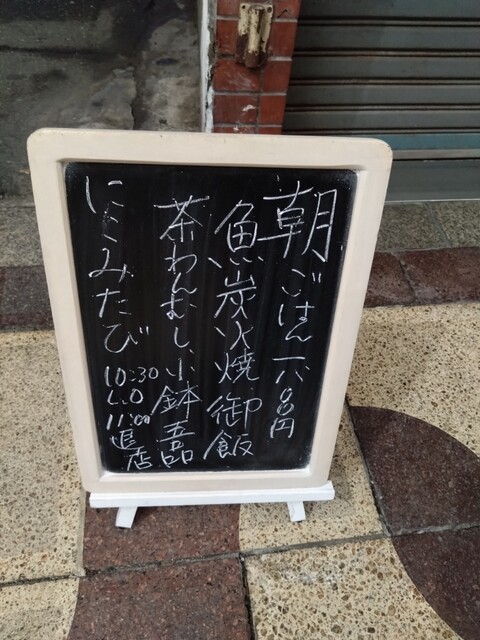 朝ごはん一八〇〇円
魚炭火焼御飯
茶わんむし小鉢五品
にこみたび
10:30
L.O
11:00
退店